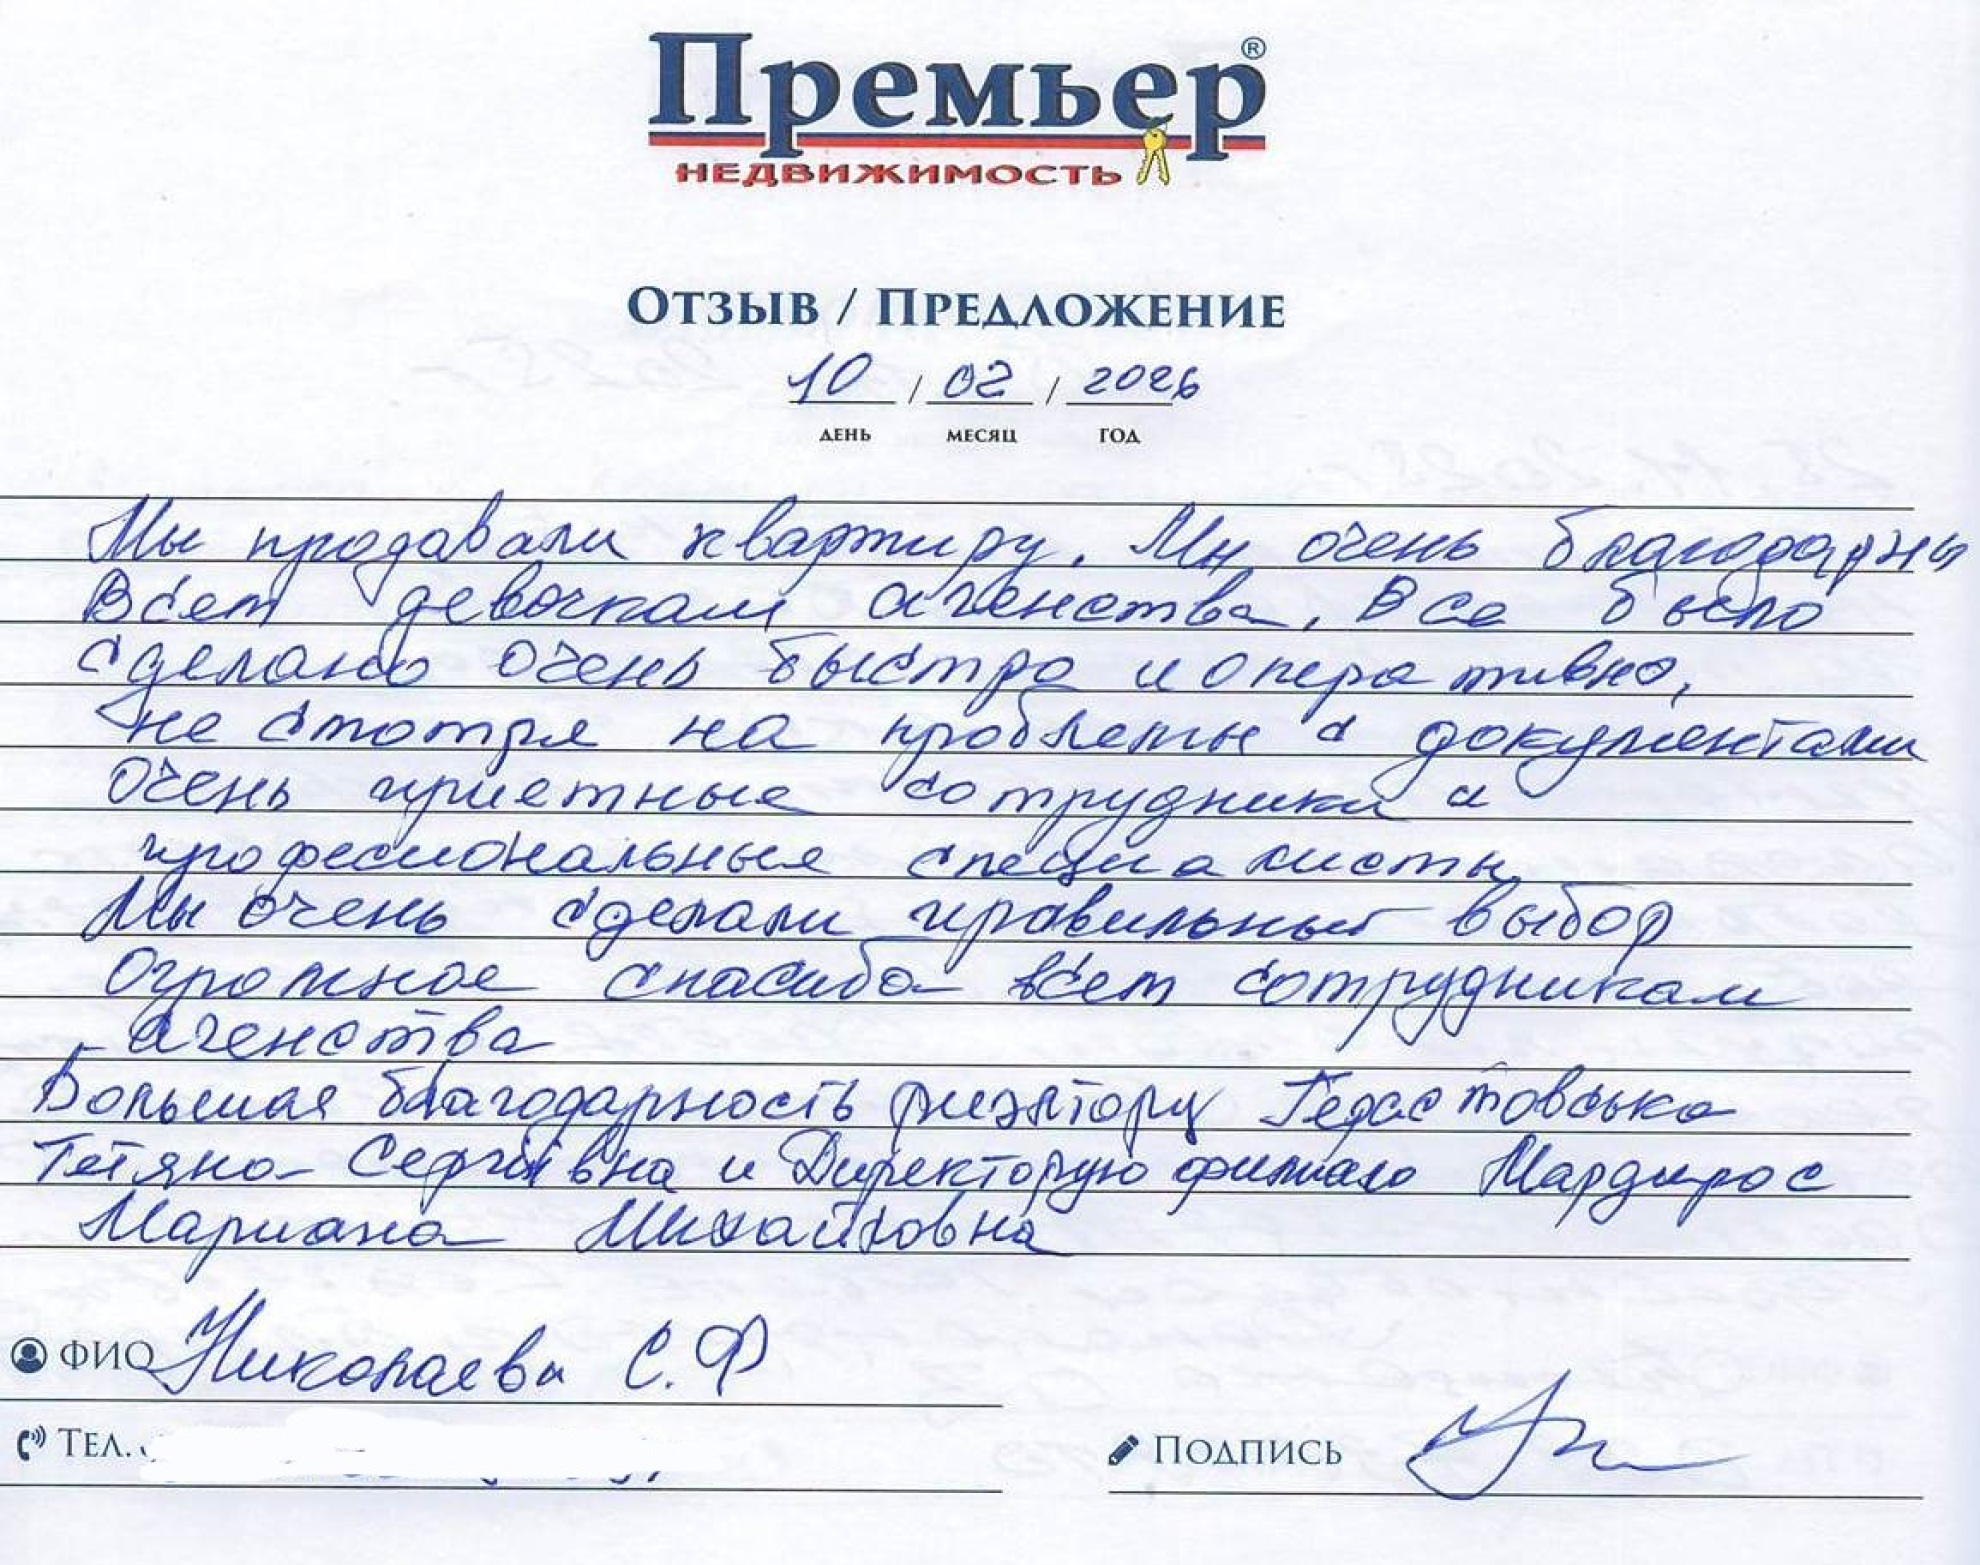 Премьер®
НЕДВИЖИМОСТЬ
ОТЗЫВ / ПРЕДЛОЖЕНИЕ
10 / 02 / 2026
ДЕНЬ МЕСЯЦ ГОД
Мы продавали квартиру. Мы очень благодарны
Всем девочкам агенства. Все было
сделано очень быстро и оперативно,
не смотря на проблемы с документами
Очень приетные сотрудники и
професиональные специалисты
Мы очень сделали правильный выбор
Огромное спасибо всем сотрудникам
агенства
Большая благодарность риэлтору
Тетяна Сергіївна и Директорую филиала Мардирос
Мариана Михайловна
ФИО Николаева С.Ф
ТЕЛ.
ПОДПИСЬ